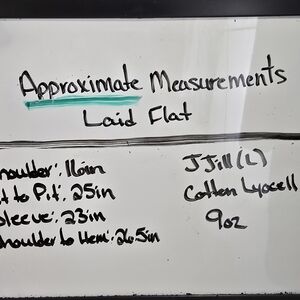 Approximate Measurements
Laid Flat
houlder: 16in
t to Pit: 25in
sleeve: 23in
houlder to Hem: 26.5in
J Jill (L)
Cotton Lyocell
9oz